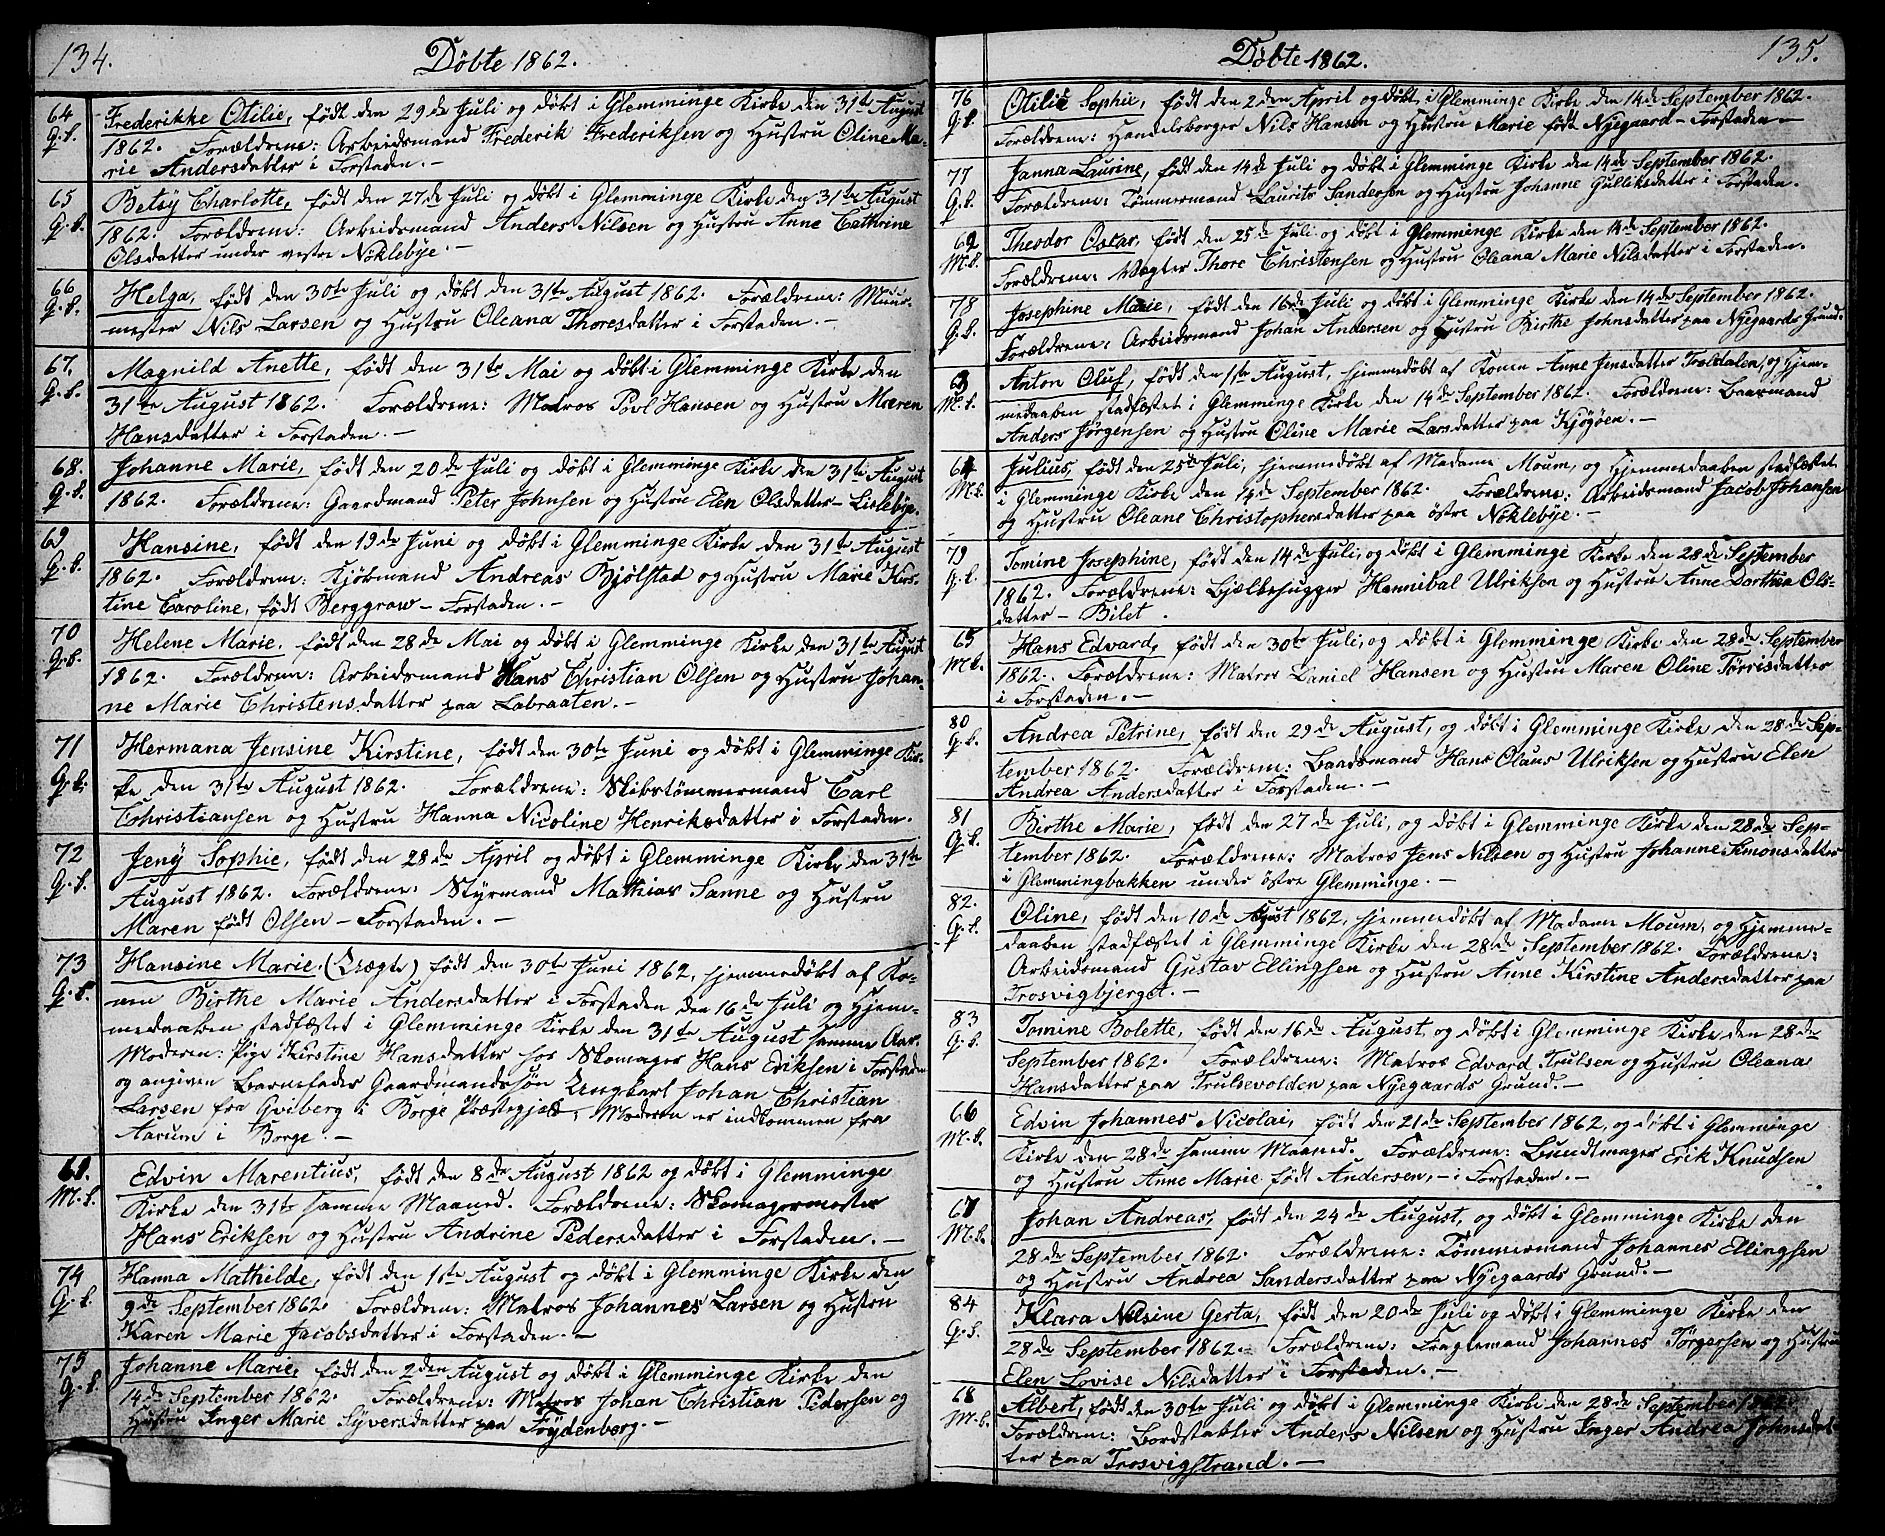 134.
Döbte 1862.
64 Frederikke Otilie, født den 29de Juli og døbt i Glemminge Kirke den 31te August
Q.k. 1862. Forældrene: Arbeidsmand Frederik Frederiksen og Hustru Oline Ma-
rie Andersdatter i Forstaden. —
65 Betsÿ Charlotte, født den 27de Juli og døbt i Glemminge Kirke den 31te August
Q.k. 1862. Forældrene: Arbeidsmand Anders Nilsen og Hustru Anne Cathrine
Olsdatter under vestre Nöklebÿe. —
66 Helga, født den 30te Juli og døbt den 31te August 1862. Forældrene: Muur-
Q.k. mester Nils Larsen og Hustru Oleana Thoresdatter i Forstaden. —
67. Magnild Anette, født den 31te Mai og døbt i Glemminge Kirke den
Q.k. 31te August 1862. Forældrene: Matros Povl Hansen og Hustru Maren
Hansdatter i Forstaden. —
68. Johanne Marie, født den 20de Juli og døbt i Glemminge Kirke den 31te August
Q.k. 1862. Forældrene: Gaardmand Peter Johnsen og Hustru Elen Olsdatter – Lislebÿe.
69 Hansine, født den 19de Juni og døbt i Glemminge Kirke den 31te August
Q.k. 1862. Forældrene: Kjøbmand Andreas Bjölstad og Hustru Marie Kirs-
tine Caroline, født Berggraw – Forstaden. —
70 Helene Marie, født den 28de Mai og døbt i Glemminge Kirke den 31te August
Q.k. 1862. Forældrene: Arbeidsmand Hans Christian Olsen og Hustru Johan-
ne Marie Christensdatter paa Labraaten. —
71 Hermana Jensine Kirstine, født den 30te Juni og døbt i Glemminge Kir-
Q.k. ke den 31te August 1862. Forældrene: Skibstømmermand Carl
Christiansen og Hustru Hanna Nicoline Henriksdatter i Forstaden.
72 Jenÿ Sophie, født den 28de April og døbt i Glemminge Kirke den 31te
Q.k. August 1862. Forældrene: Styrmand Mathias Sanne og Hustru
Maren født Olsen – Forstaden. —
73 Hansine Marie, (Uægte) født den 30te Juni 1862, hjemmedøbt af Ko-
Q.k. nen Birthe Marie Andersdatter i Forstaden den 16de Juli og Hjem-
medaaben stadfæstet i Glemminge Kirke den 31te August samme Aar.
Moderen: Pige Kirstine Hansdatter hos Skomager Hans Eriksen i Forstaden
og angiven Barnefader Gaardmandssön Ungkarl Johan Christian
Larsen fra Gviberg i Borge Præstegjæld; Moderen er indkommen fra
Aarum i Borge. —
61. Edvin Marentius, født den 8de August 1862 og døbt i Glemminge
M.k. Kirke den 31te samme Maaned. Forældrene: Skomagermester
Hans Eriksen og Hustru Andrine Pedersdatter i Forstaden. —
74 Hanna Mathilde, født den 1ste August og døbt i Glemminge Kirke den
Q.k. 9de September 1862. Forældrene: Matros Johannes Larsen og Hustru
Karen Marie Jacobsdatter i Forstaden. —
75 Johanne Marie, født den 2den August og døbt i Glemminge Kirke den
Q.k. 14de September 1862. Forældrene: Matros Johan Christian Pedersen og
Hustru Inger Marie Syversdatter paa Frÿdenberg. —
135.
Döbte 1862.
76 Otilie Sophie, født den 2den April og døbt i Glemminge Kirke den 14de September 1862.
Q.k. Forældrene: Handelsborger Nils Hansen og Hustru Marie født Nyegaard – Forstaden —
77 Janna Laurine, født den 14de Juli og døbt i Glemminge Kirke den 14de September 1862.
Q.k. Forældrene: Tømmermand Laurits Sandersen og Hustru Johanne Gulliksdatter i Forstaden.
62 Theodor Oscar, født den 25de Juli og døbt i Glemminge Kirke den 14de September 1862.
M.k. Forældrene: Vægter Thore Christensen og Hustru Oleana Marie Nilsdatter i Forstaden.
78 Josephine Marie, født den 16de Juli og døbt i Glemminge Kirke den 14de September 1862.
Q.k. Forældrene: Arbeidsmand Johan Andersen og Hustru Birthe Johnsdatter paa Nyegaards Grund.
63 Anton Oluf, født den 1ste August, hjemmedøbt af Konen Anne Jensdatter Trosdalen, og Hjem-
M.k. medaaben stadfæstet i Glemminge Kirke den 14de September 1862. Forældrene: Baadsmand
Anders Jörgensen og Hustru Oline Marie Larsdatter paa Kjøgøen. —
64 Julius, født den 25de Juli, hjemmedøbt af Madame Moum, og Hjemmedaaben stadfæstet
M.k. i Glemminge Kirke den 14de September 1862. Forældrene: Arbeidsmand Jacob Johansen
og Hustru Oleane Christophersdatter paa östre Nöklebÿe. —
79 Tomine Josephine, født den 14de Juli, og døbt i Glemminge Kirke den 28de September
Q.k. 1862. Forældrene: Bjælkehugger Hannibal Ulriksen og Hustru Anne Dorthea Ols-
datter – Bilet.
65 Hans Edvard, født den 30te Juli, og døbt i Glemminge Kirke den 28de September
M.k. 1862. Forældrene: Matros Daniel Hansen og Hustru Maren Oline Törrisdatter
i Forstaden. —
80 Andrea Petrine, født den 29de August, og døbt i Glemminge Kirke den 28de Sep-
Q.k. tember 1862. Forældrene: Baadsmand Hans Olaus Ulriksen og Hustru Elen
Andrea Andersdatter i Forstaden. —
81 Birthe Marie, født den 27de Juli, og døbt i Glemminge Kirke den 28de Sep-
Q.k. tember 1862. Forældrene: Matros Jens Nilsen og Hustru Johanne Simonsdatter
i Glemmingbakken under östre Glemminge. —
82. Oline, født den 10de August 1862, hjemmedøbt af Madame Moum, og Hjemme-
Q.k. daaben stadfæstet i Glemminge Kirke den 28de September 1862. Forældrene:
Arbeidsmand Gustav Ellingsen og Hustru Anne Kirstine Andersdatter paa
Trosvigbjerget. —
83 Tomine Bolette, født den 16de August og døbt i Glemminge Kirke den 28de
Q.k. September 1862. Forældrene: Matros Edvard Trulsen og Hustru Oleana
Hansdatter paa Trulsevolden paa Nyegaards Grund. —
66 Edvin Johannes Nicolai, født den 21de September 1862, og døbt i Glemminge
M.k. Kirke den 28de samme Maaned. Forældrene: Bundtmager Erik Knudsen
og Hustru Anne Marie født Andersen, – i Forstaden. —
67 Johan Andreas, født den 24de August, og døbt i Glemminge Kirke den
M.k. 28de September 1862. Forældrene: Tømmermand Johannes Ellingsen
og Hustru Andrea Sandersdatter paa Nyegaards Grund. —
84 Klara Nilsine Gerta, født den 20de Juli og døbt i Glemminge Kirke den
Q.k. 28de September 1862. Forældrene: Fragtemand Johannes Törgersen og Hustru
Elen Lovise Nilsdatter i Forstaden. —
68 Albert, født den 30te Juli og døbt i Glemminge Kirke den 28de September 1862.
M.k. Forældrene: Bordstabler Anders Nilsen og Hustru Inger Andrea Johnsdat-
ter paa Trosvigstrand. —